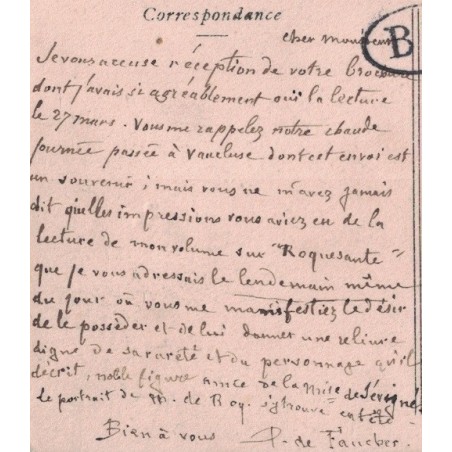 Correspondance
cher monsieur
B
Je vous accuse réception de votre brochure
dont j'avais si agréablement ouï la lecture
le 27 mars. Vous me rappelez notre chaude
journée passée à Vaucluse dont cet envoi est
un souvenir; mais vous ne m'avez jamais
dit quelles impressions vous aviez eu de la
lecture de mon volume sur "Roquesante"
que je vous adressais le lendemain même
du jour où vous me manifestiez le désir
de le posséder et de lui donner une reliure
digne de sa rareté et du personnage qu'il
décrit, noble figure amie de la Mise de Sévigné
le portrait de M. de Roq. s'y trouve en tête
Bien à vous P. de Faucher.